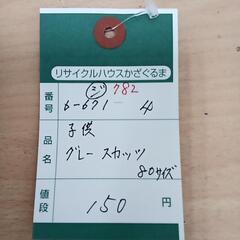 リサイクルハウスかざぐるま
番号 6-671-4
782
品名 子供
グレー スカッツ
80サイズ
値段 150円